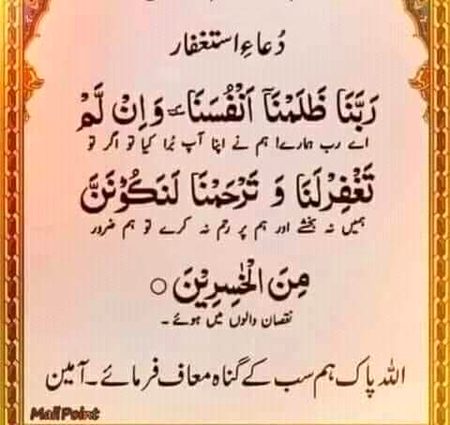 دُعاءِ استغفار
رَبَّنَا ظَلَمْنَآ اَنْفُسَنَا وَاِنْ لَّمْ
اے رب ہمارے! ہم نے اپنا آپ بُرا کیا تو اگر تو
تَغْفِرْلَنَا وَ تَرْحَمْنَا لَنَكُوْنَنَّ
ہمیں نہ بخشے اور ہم پر رحم نہ کرے تو ہم ضرور
مِنَ الْخٰسِرِيْنَ ○
نقصان والوں میں ہوئے ۔
اللہ پاک ہم سب کے گناہ معاف فرمائے۔ آمین
Mail Point